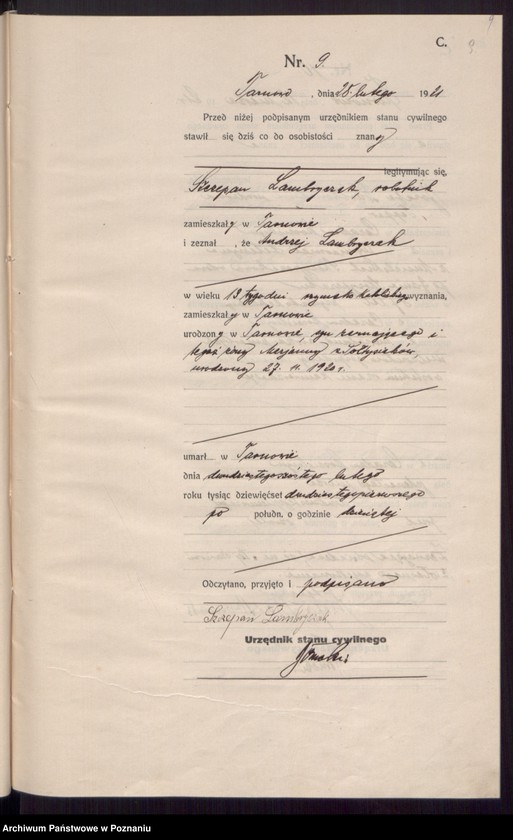 C.
Nr. 9.
Tarnowo, dnia 28. lutego 1921
Przed niżej podpisanym urzędnikiem stanu cywilnego
stawił się dziś co do osobistości znany
legitymując się,
Szczepan Lambryczak, robotnik
zamieszkały w Tarnowie
i zeznał, że Andrzej Lambryczak
w wieku 13 tygodni rzymsko katolickiego wyznania,
zamieszkały w Tarnowie
urodzony w Tarnowie, syn zeznającego i
tegoż żony Marjanny z
urodzony 27. 11. 1920 r.
umarł w Tarnowie
dnia dwudziestego szóstego lutego
roku tysiąc dziewięćset dwudziestego pierwszego
po połudn. o godzinie
Odczytano, przyjęto i podpisano
Szczepan Lambryczak
Urzędnik stanu cywilnego
Archiwum Państwowe w Poznaniu